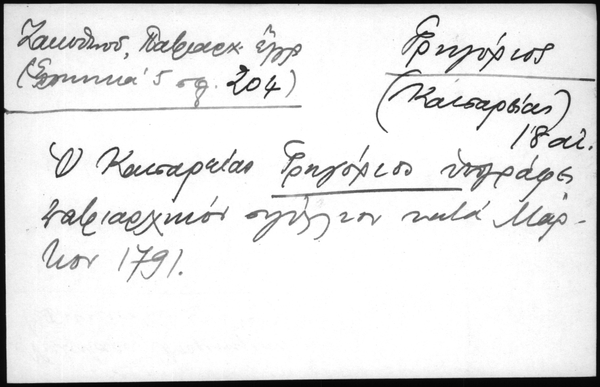 Ζακυθηνοῦ, Πατριαρχ. ἔγγρ
(Ἑλληνικά 5 σελ. 204)
Γρηγόριος
(Καισαρείας)
18 αἰ.
Ὁ Καισαρείας Γρηγόριος ὑπογράφει
πατριαρχικόν σιγίλλιον κατά Μάρ-
τιον 1791.